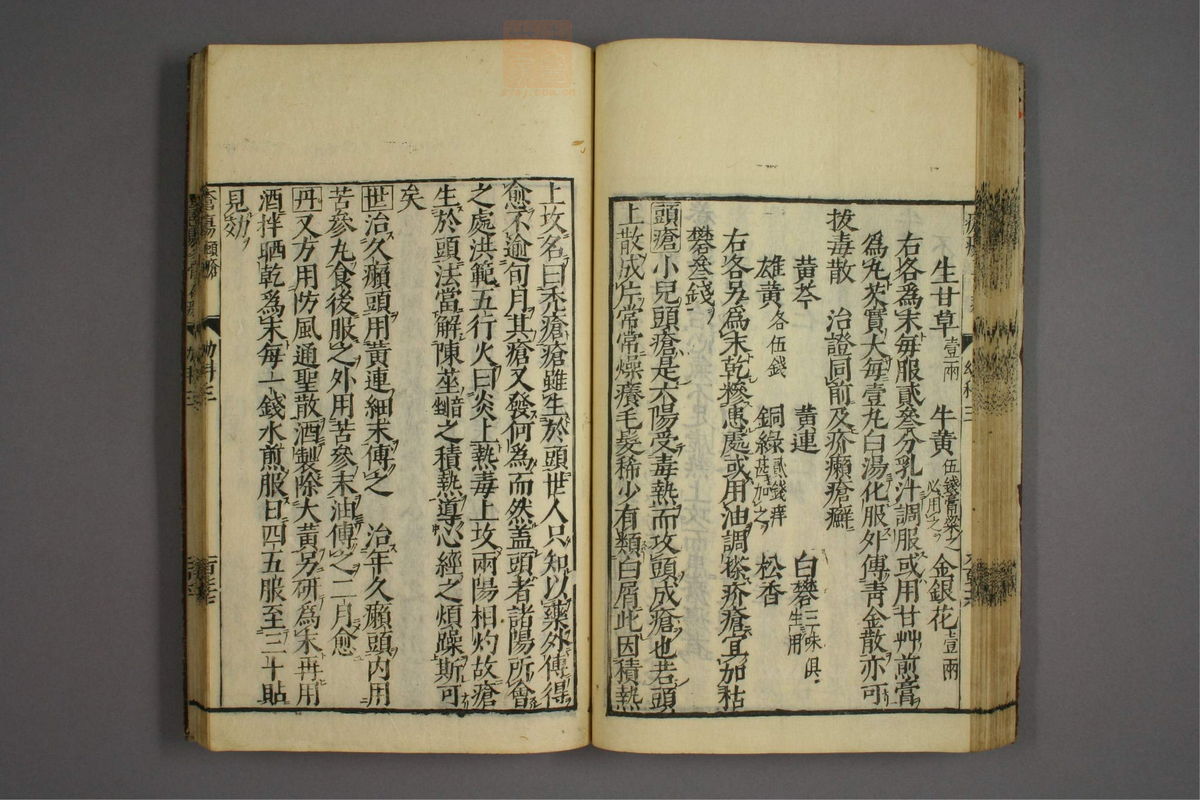 生甘草壹兩 牛黃伍錢膏粱之必用之 金銀花壹兩
右各爲末每服貳叄分乳汁調服或用甘艸煎膏
爲丸芡實大每壹丸白湯化服外傅靑金散亦可
拔毒散 治證同前及疥癩瘡癬
黃芩 黃連 白礬三味俱生用
雄黃各伍錢 銅綠貳錢痒甚加之 松香
右各另爲末乾糝患處或用油調搽疥瘡宜加枯
礬叄錢
頭瘡小兒頭瘡是太陽受毒熱而攻頭成瘡也若頭
上散成片常常燥癢毛髮稀少有類白屑此因積熱
上攻名曰禿瘡瘡雖生於頭世人只知以藥外傅得
愈不逾旬月其瘡又發何爲而然蓋頭者諸陽所會
之處洪範五行火曰炎上熱毒上攻兩陽相灼故瘡
生於頭法當解陳莝之積熱導心經之煩躁斯可
矣
世治久癩頭用黃連細末傅之 治年久癩頭內用
苦參丸食後服之外用苦參末油傅之二月愈
丹又方用防風通聖散酒製除大黃另研爲末再用
酒拌晒乾爲末每一錢水煎服日四五服至三十貼
見効
幼科三